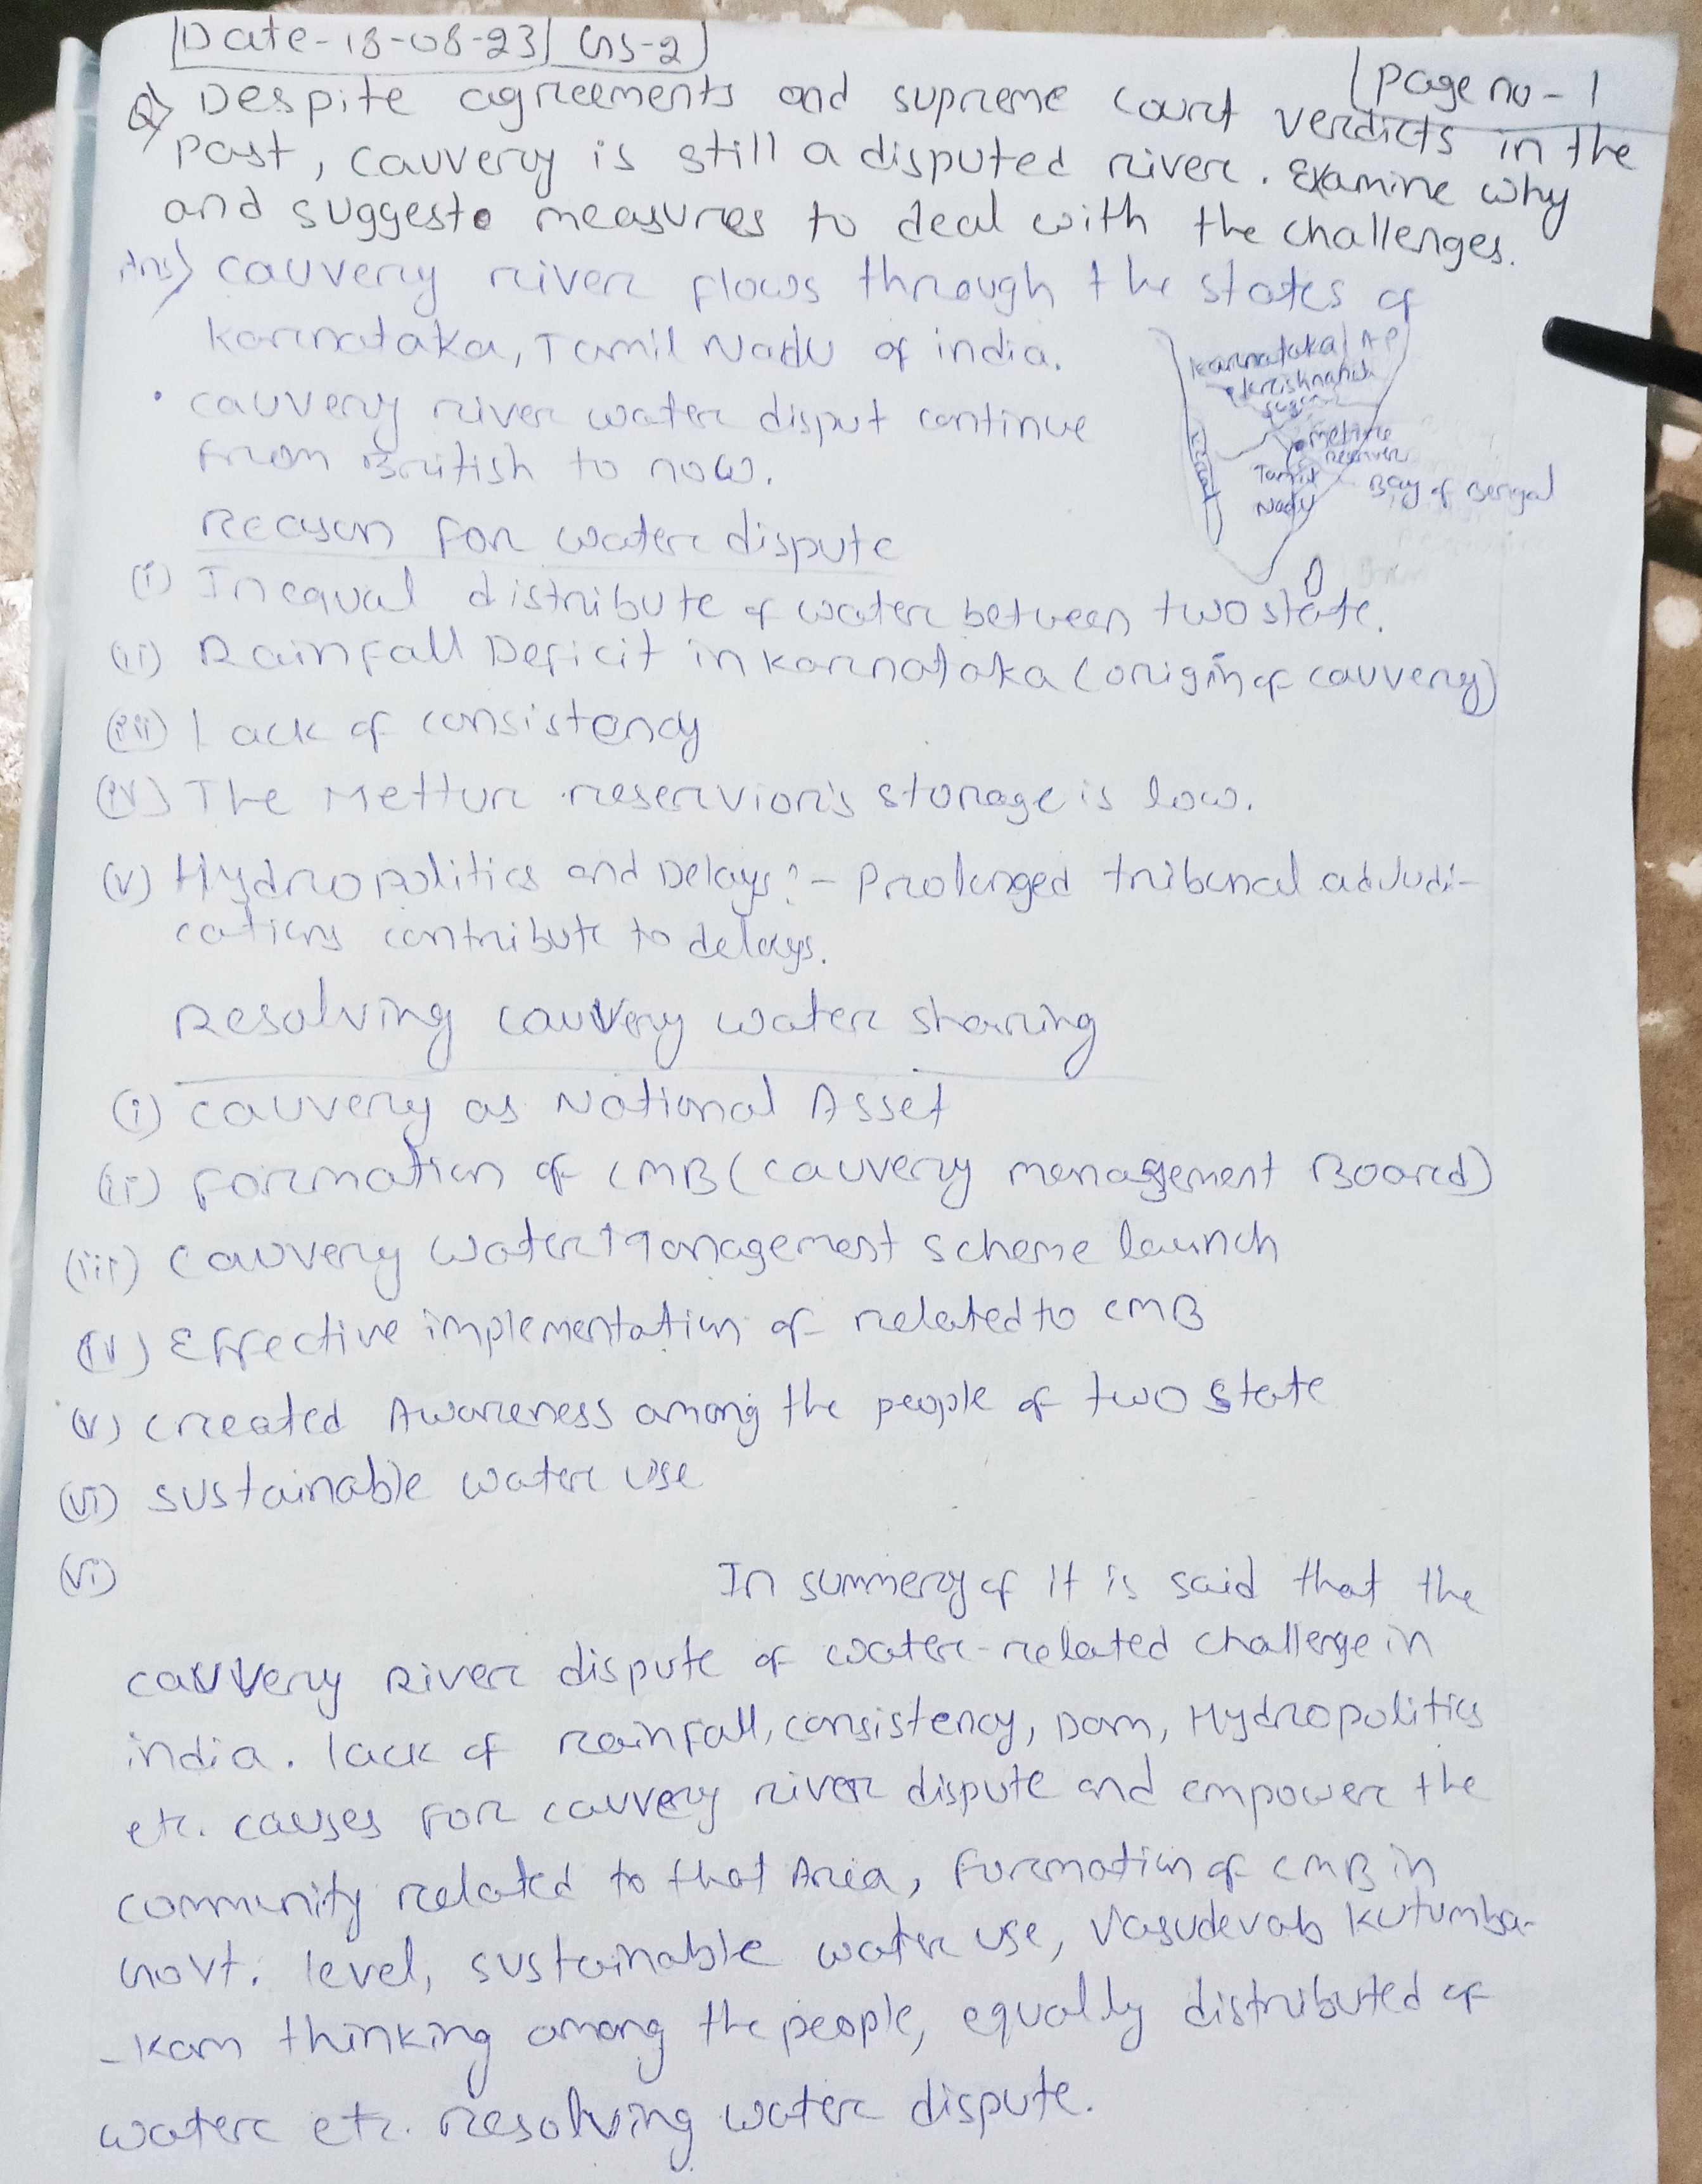 Date-18-08-23 GS-2
Page no-1
Q) Despite agreements and supreme court verdicts in the
past, Cauvery is still a disputed river. Examine why
and suggest measures to deal with the challenges.
Ans) Cauvery river flows through the states of
Karnataka, Tamil Nadu of india.
Karnataka A.P
Krishnarah
sagar
mettur
reserver
Tamil
Nadu
Bay of Bengal
• Cauvery river water disput continue
from British to now.
Reason for water dispute
(i) Inequal distribute of water between two state.
(ii) Rainfall Deficit in Karnataka (origin of cauvery)
(iii) Lack of consistency
(iv) The Mettur reservior's storage is low.
(v) Hydropolitics and Delays:- Prolonged tribunal adjudi-
cations contribute to delays.
Resolving cauvery water sharing
(i) Cauvery as National Asset
(ii) Formation of CMB (Cauvery Management Board)
(iii) Cauvery water Management scheme launch
(iv) Effective implementation of related to CMB
(v) created Awareness among the people of two state
(vi) sustainable water use
(vi)
In summery of it is said that the
cauvery River dispute of water-related challenge in
india. lack of rainfall, consistency, Dam, Hydropolitics
etc. causes for cauvery river dispute and empower the
community related to that Area, Formation of CMB in
Govt. level, sustainable water use, Vasudevab Kutumba-
-kam thinking among the people, equally distributed of
water etc. resolving water dispute.